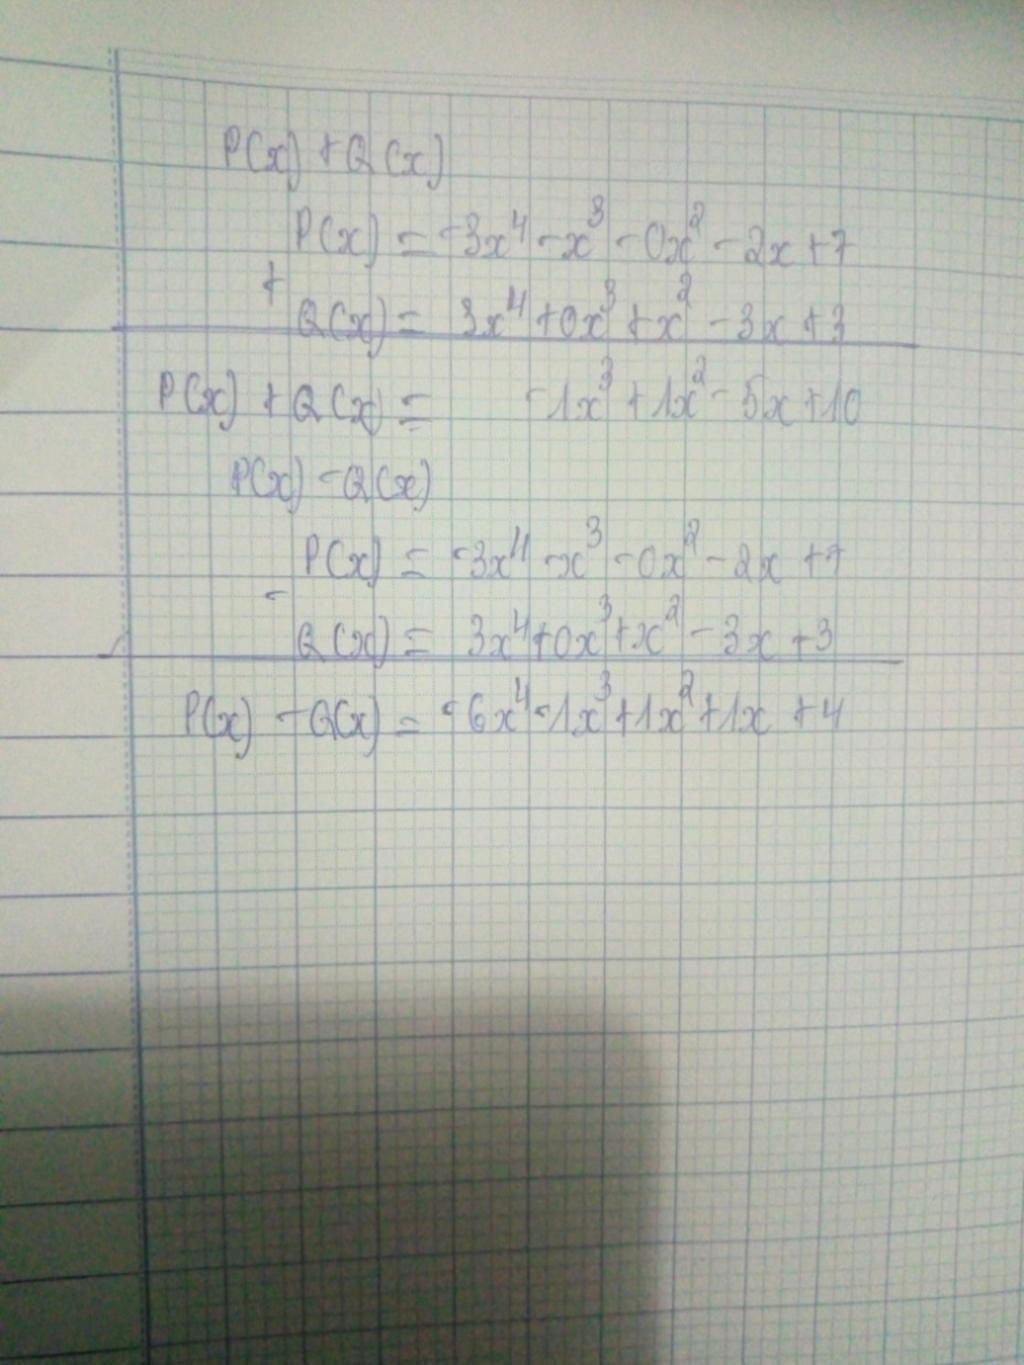 P(x) + Q(x)
P(x) = -3x⁴ - x³ - 0x² - 2x + 7
+
Q(x) = 3x⁴ + 0x³ + x² - 3x + 3
P(x) + Q(x) = -1x³ + 1x² - 5x + 10
P(x) - Q(x)
P(x) = -3x⁴ - x³ - 0x² - 2x + 7
-
Q(x) = 3x⁴ + 0x³ + x² - 3x + 3
P(x) - Q(x) = -6x⁴ - 1x³ + 1x² + 1x + 4